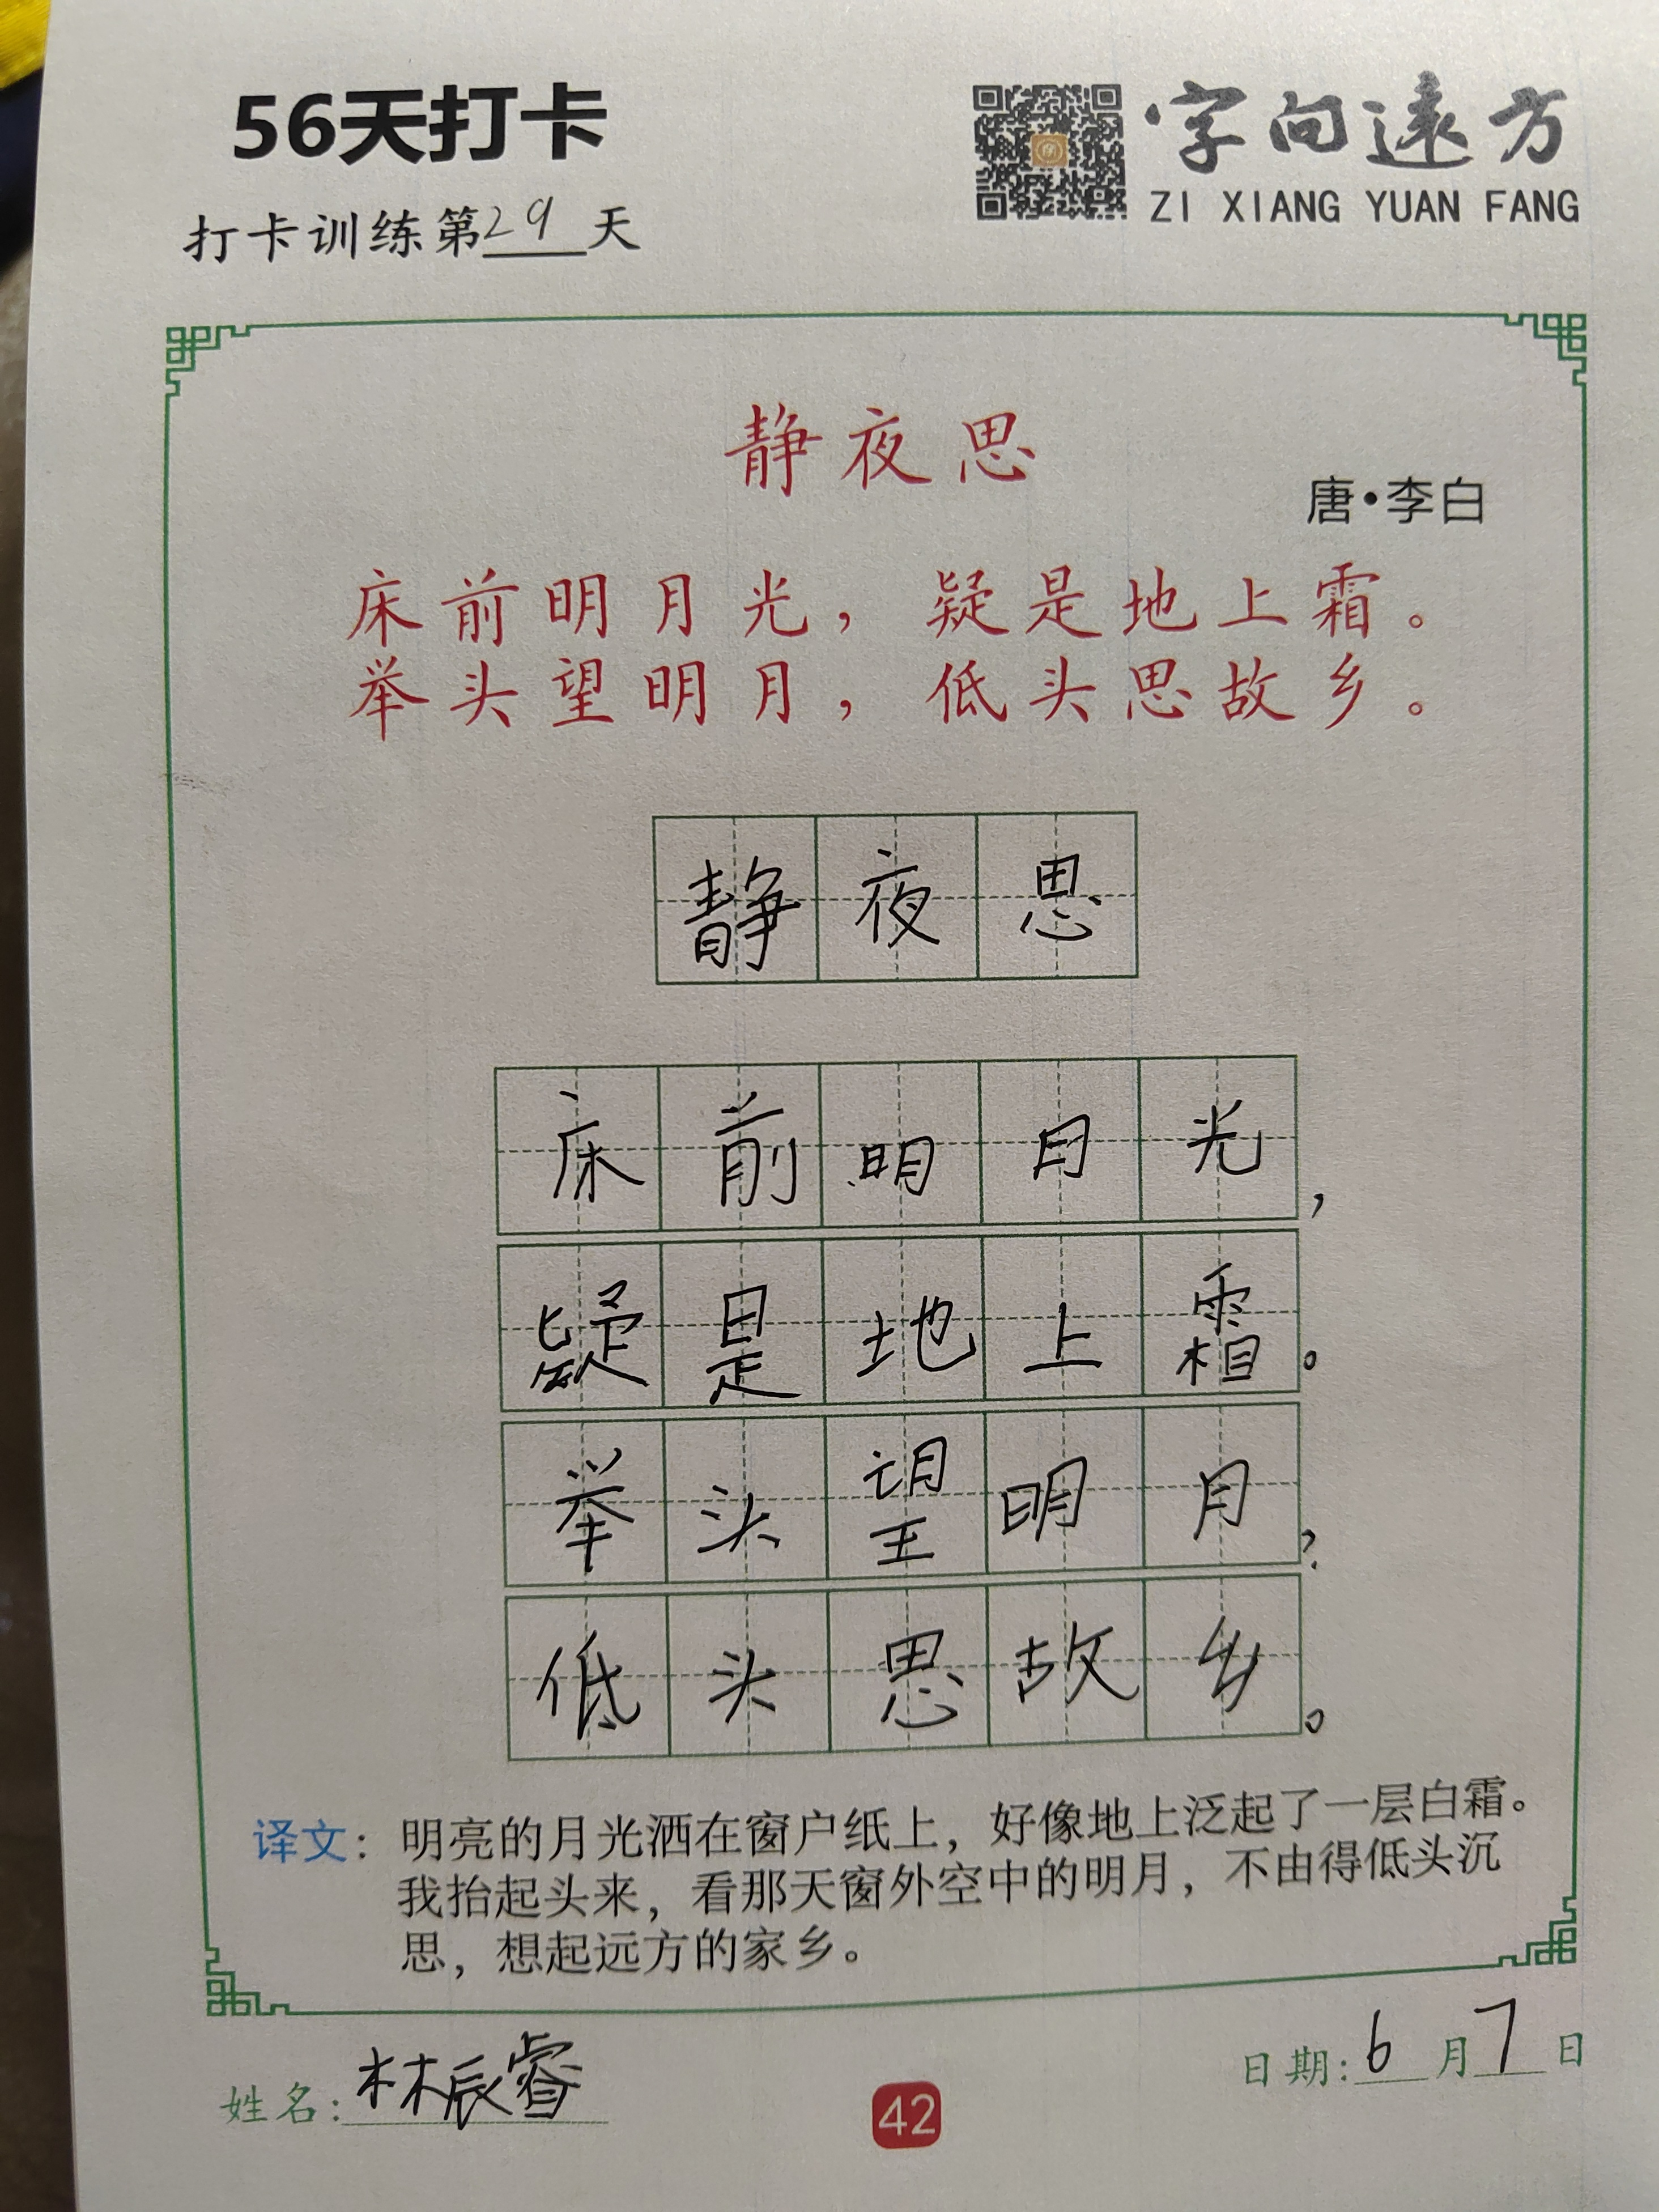 56天打卡
字向遠方
ZI XIANG YUAN FANG
打卡训练第29天
静夜思
唐·李白
床前明月光，疑是地上霜。
举头望明月，低头思故乡。
静夜思
床前明月光，
疑是地上霜。
举头望明月，
低头思故乡。
译文：明亮的月光洒在窗户纸上，好像地上泛起了一层白霜。
我抬起头来，看那天窗外空中的明月，不由得低头沉
思，想起远方的家乡。
姓名：林辰睿
日期：6月7日
42